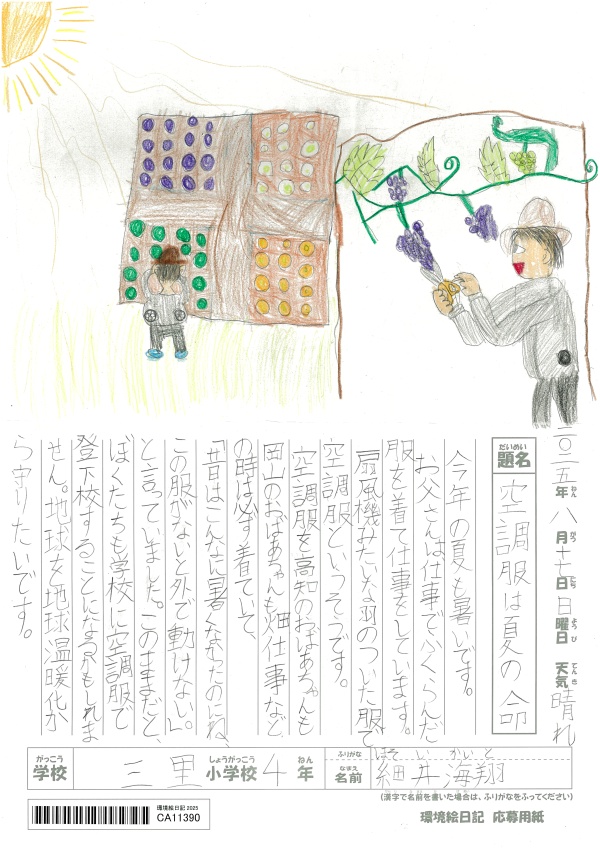 二〇二五年八月十七日日曜日 天気 晴れ
ねん がつ にち ようび てんき
だいめい
題名 空調服は夏の命
今年の夏も暑いです。
お父さんは仕事でふくらんだ
服を着て仕事をしています。
扇風機みたいな羽のついた服で
空調服といっそうです。
空調服を高知のおばあちゃんも
岡山のおばあちゃんも畑仕事など
の時は必ず着ていて、
「昔はこんなに暑くなかったのにね、
この服がないと外で動けない。」
と言っていました。このままだと、
ぼくたちも学校に空調服で
登下校することになるかもしれま
せん。地球を地球温暖化か
ら守りたいです。
がっこう しょうがっこう ねん
学校 三里 小学校 4 年
ふりがな ほそい かいと
なまえ
名前 細井海翔
(漢字で名前を書いた場合は、ふりがなをふってください)
環境絵日記 2025
CA11390
環境絵日記 応募用紙